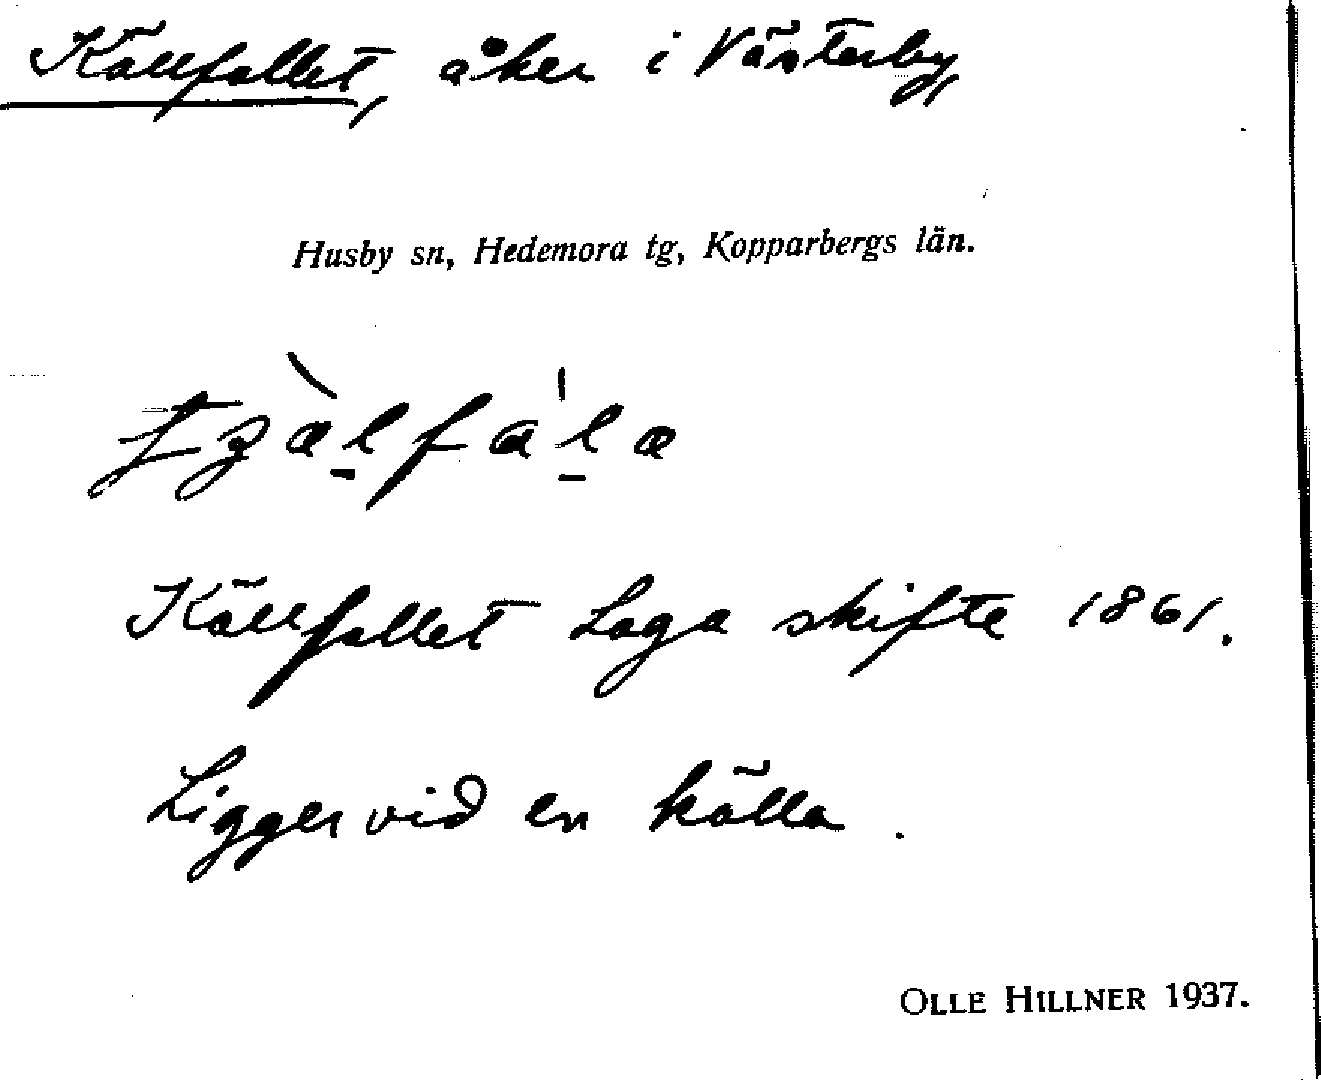 Källfallet, åker i Västerby,
Husby sn, Hedemora tg, Kopparbergs län.
Källfallet Laga skifte 1861.
Ligger vid en källa.
OLLE HILLNER 1937.